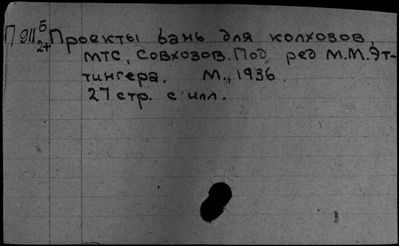 П 911 б/2+ Проекты бань для колхозов,
МТС, совхозов. Под ред М.М.Эт-
тингера. М., 1936.
27 стр. с илл.